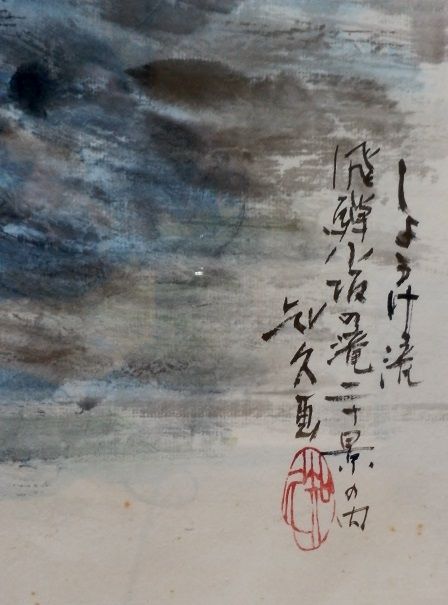 しようけ滝
飛騨小坂の滝二十景の内
久画